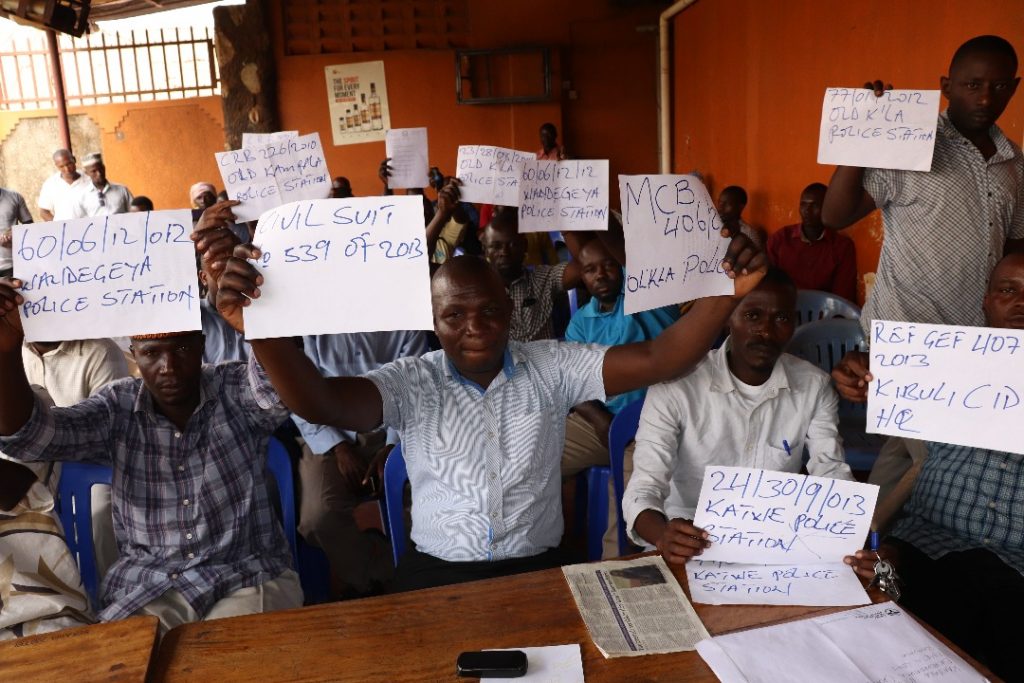 THE SPIRIT
FOR EVERY
MOMENT
77/01/2012
OLD K'LA
POLICE STATION
CRB 226/2010
OLD KAMPALA
POLICE STATION
OLD K'LA
POLICE STA
60/06/12/12
WANDEGEYA
POLICE STATION
MCB
406/2
OLKLA POLI
60/06/12/012
WANDEGEYA
POLICE STATION
CIVIL SUIT
No 539 OF 2013
REF GEF 407
2013
KIBULI CID
HQ
24/30/9/013
KATWE POLICE
STATION
KATWE POLICE
STATION